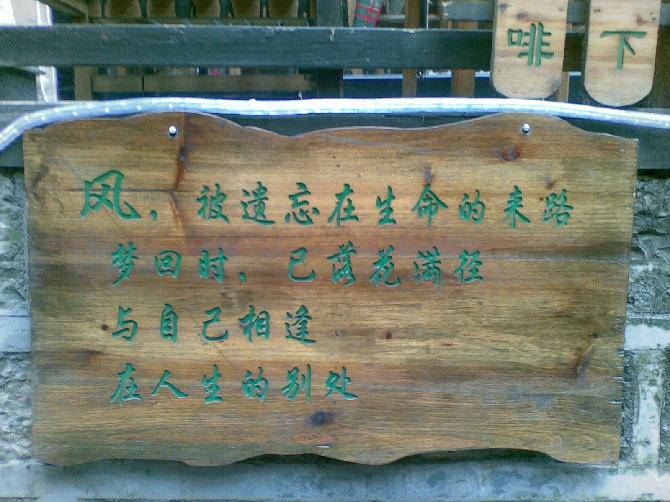 啡
下
风，被遗忘在生命的来路
梦回时，已落花满径
与自己相逢
在人生的别处